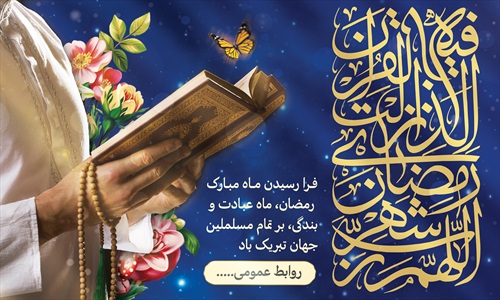 اللهم رب شهر
رمضان
الذی انزلت
فیه القرآن
فرا رسیدن ماه مبارک
رمضان، ماه عبادت و
بندگی، بر تمام مسلملین
جهان تبریک باد
روابط عمومی.....